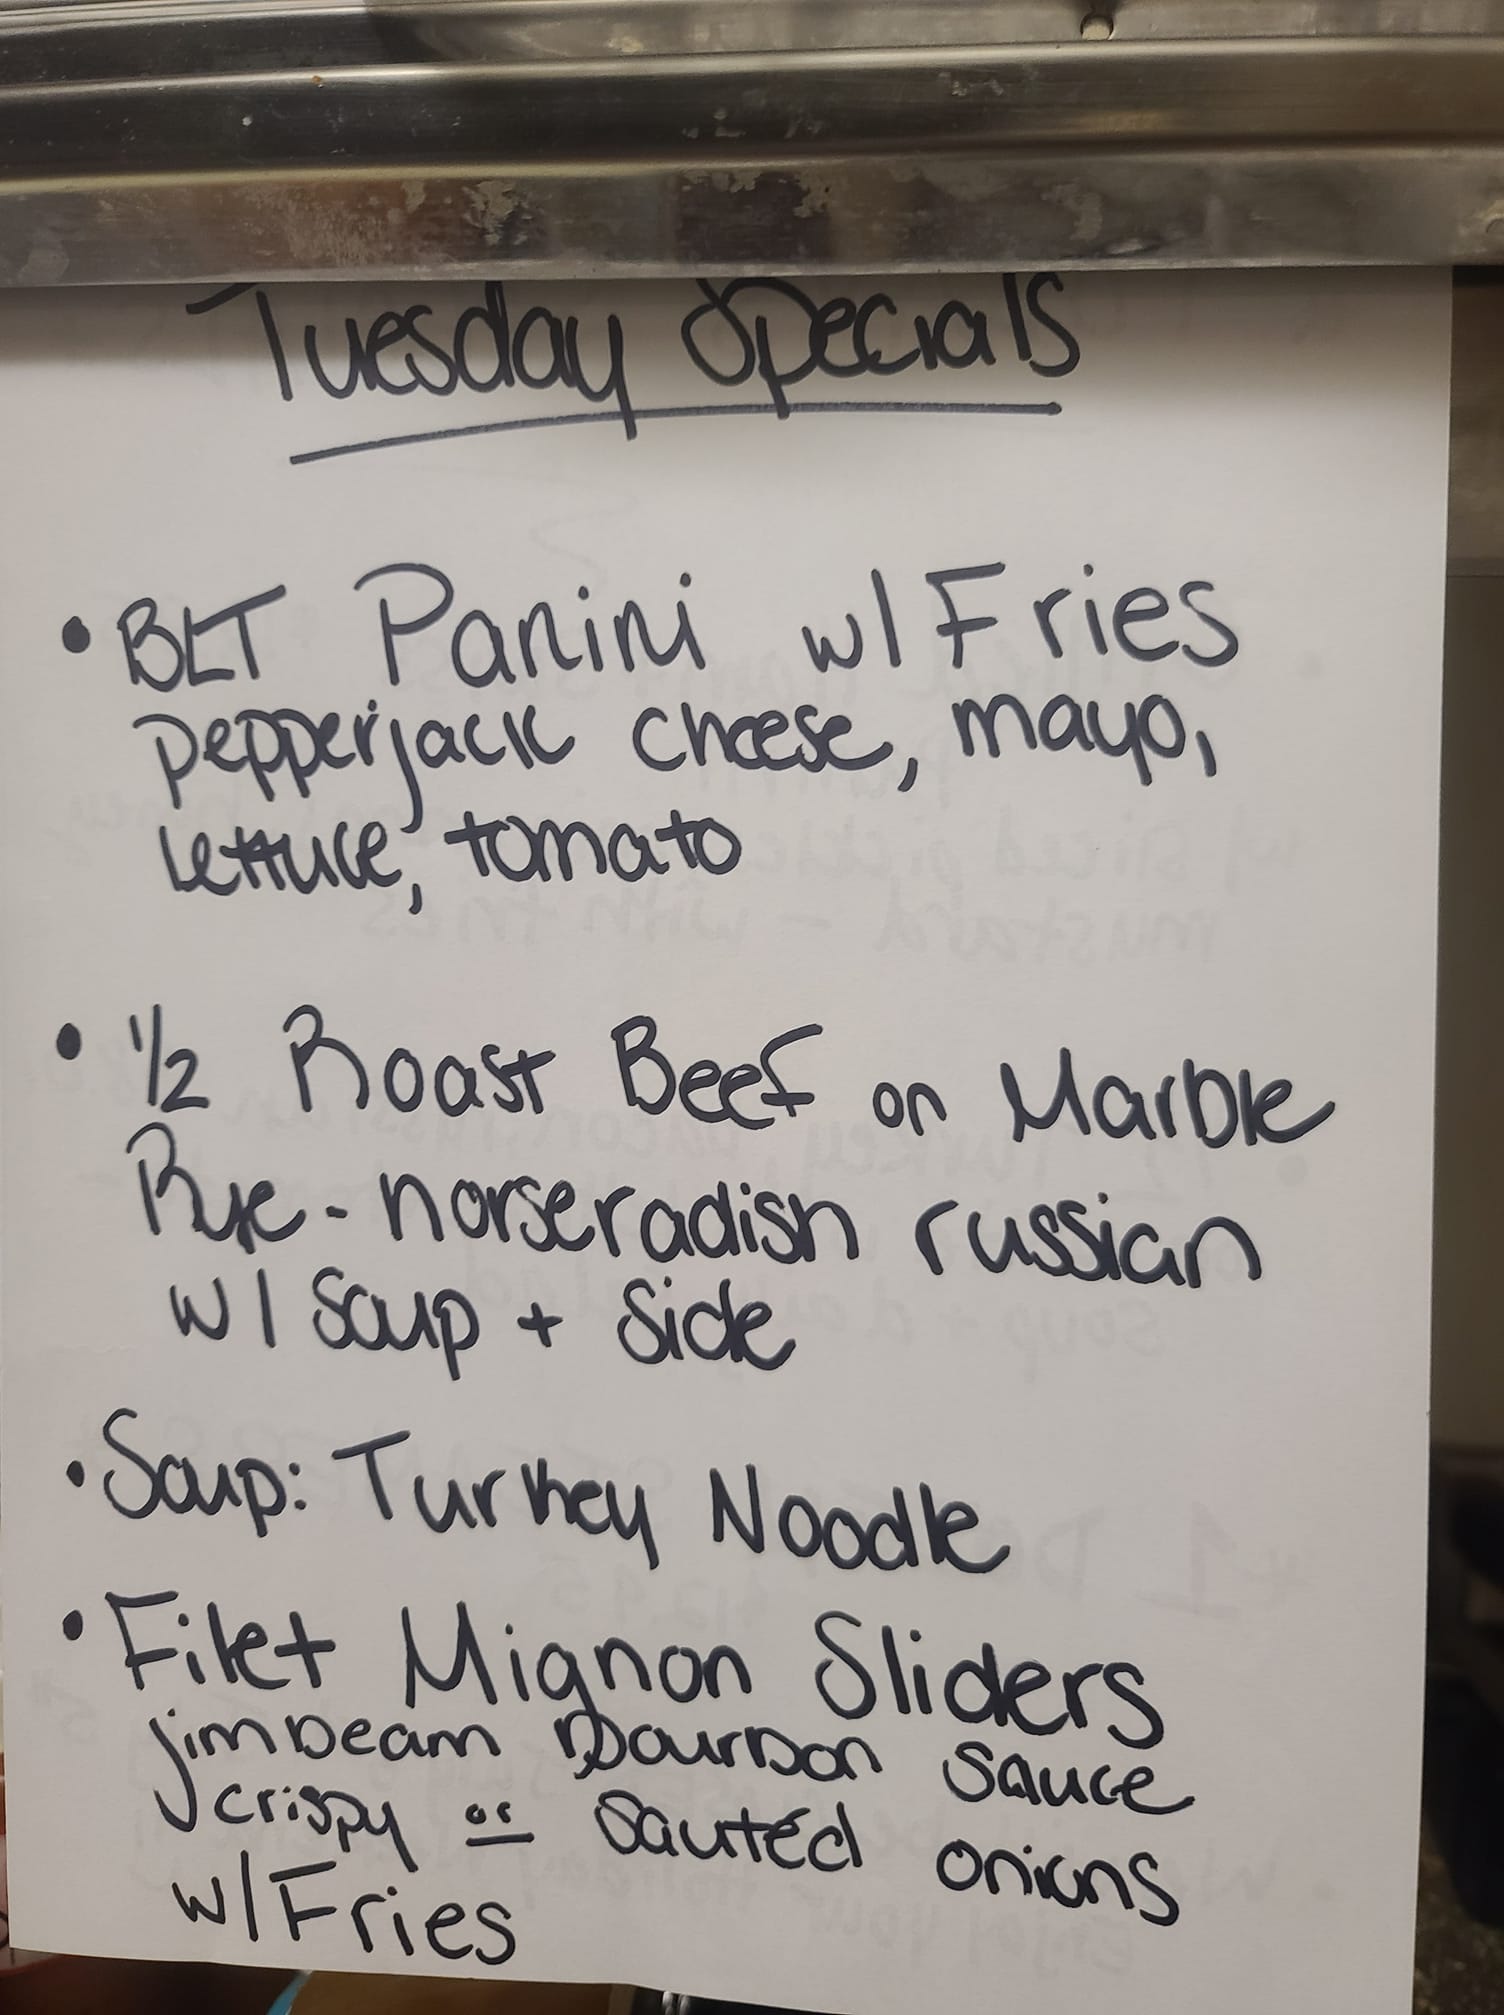 Tuesday Specials
• BLT Panini w/ Fries
pepperjack cheese, mayo,
lettuce, tomato
• 1/2 Roast Beef on Marble
Rye - horseradish russian
w/ Soup + Side
• Soup: Turkey Noodle
• Filet Mignon Sliders
jim beam Bourbon sauce
crispy or Sautéd onions
w/ Fries